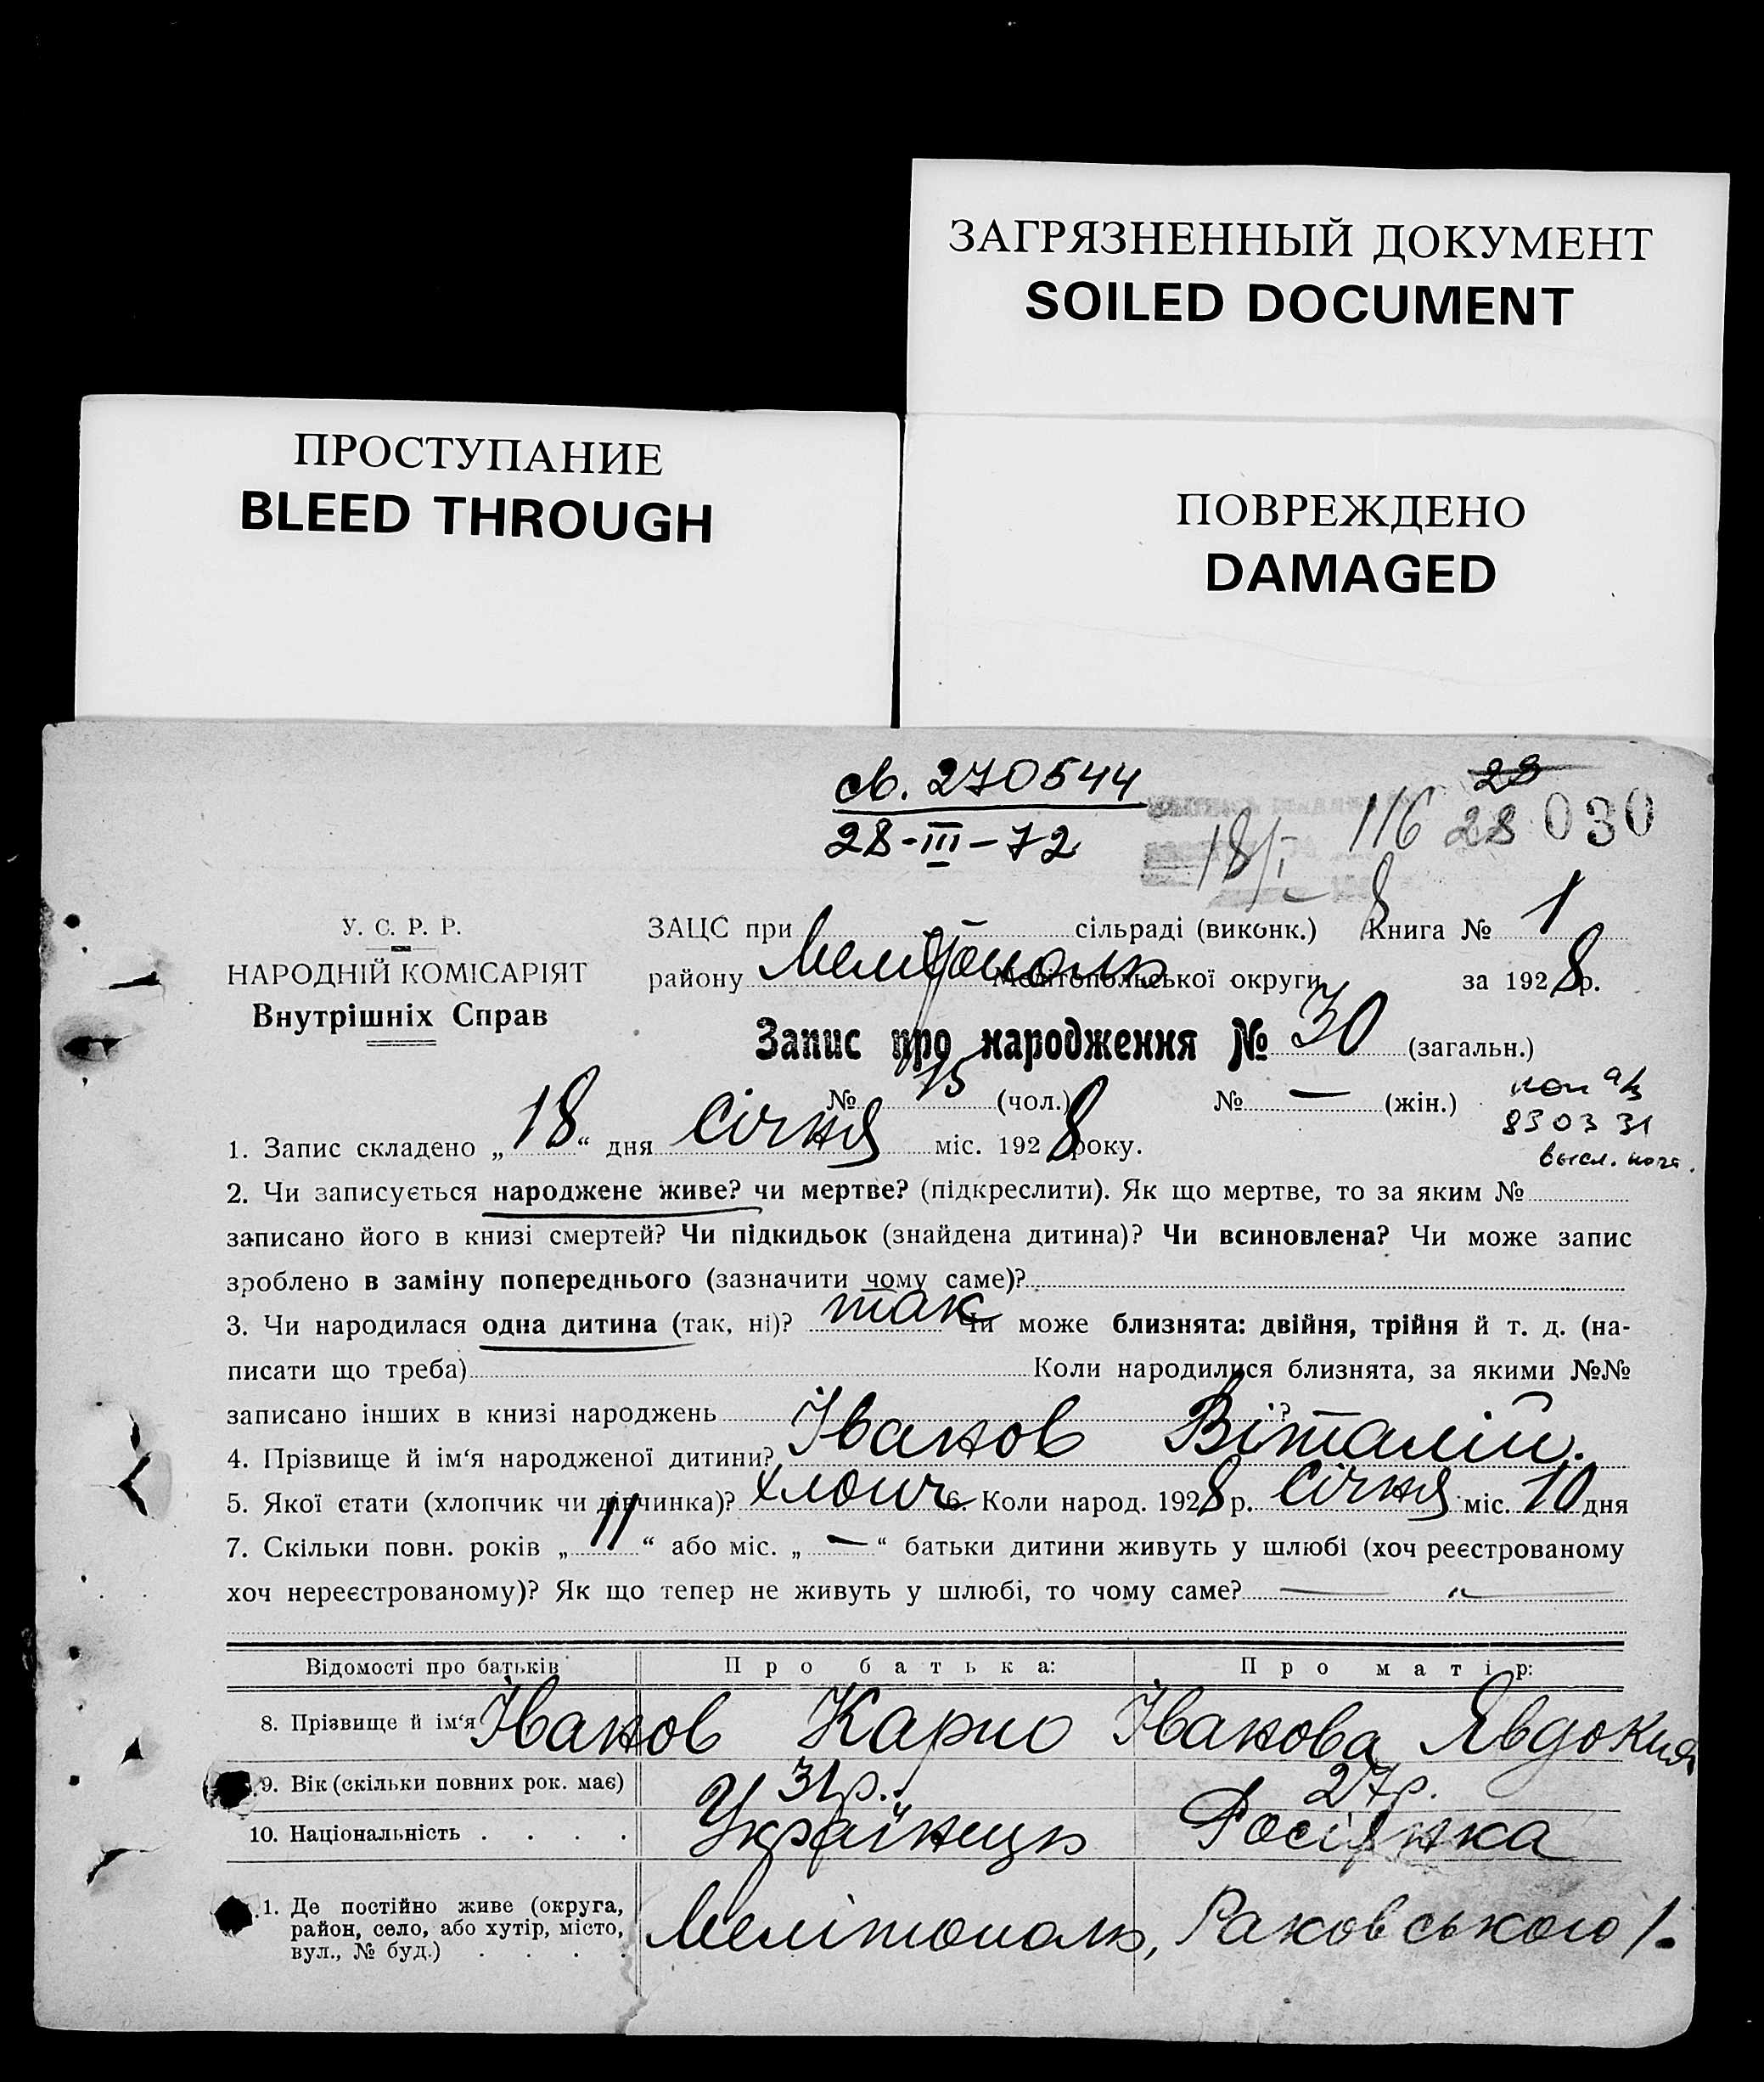 ЗАГРЯЗНЕННЫЙ ДОКУМЕНТ
SOILED DOCUMENT
ПРОСТУПАНИЕ
BLEED THROUGH
ПОВРЕЖДЕНО
DAMAGED
св. 270544
28-III-72
28
18/I 116 28 030
У. С. Р. Р.
НАРОДНІЙ КОМІСАРІЯТ
Внутрішніх Справ
ЗАЦС при сільраді (виконк.) Книга № 1
району Мелітополь Мелітопольської округи за 1928 р.
Запис про народження № 30 (загальн.)
№ 15 (чол.) № — (жін.)
83 03 31
1. Запис складено „18“ дня Січня міс. 1928 року.
2. Чи записується народжене живе? чи мертве? (підкреслити). Як що мертве, то за яким №
записано його в книзі смертей? Чи підкидьок (знайдена дитина)? Чи всиновлена? Чи може запис
зроблено в заміну попереднього (зазначити чому саме)?
3. Чи народилася одна дитина (так, ні)? так Чи може близнята: двійня, трійня й т. д. (на-
писати що треба) Коли народилися близнята, за якими №№
записано інших в книзі народжень ?
4. Прізвище й ім‘я народженої дитини? Іванов Віталій.
5. Якої стати (хлопчик чи дівчинка)? хлопч 6. Коли народ. 1928 р. Січня міс. 10 дня
7. Скільки повн. років „11“ або міс. „—“ батьки дитини живуть у шлюбі (хоч реєстрованому
хоч нереєстрованому)? Як що тепер не живуть у шлюбі, то чому саме? — „ —
Відомості про батьків Про батька: Про матір:
8. Прізвище й ім‘я Іванов Карпо Іванова Явдокия
9. Вік (скільки повних рок. має) 31р. 27р.
10. Національність . . . . Українець Росіянка
1. Де постійно живе (округа,
район, село, або хутір, місто,
вул., № буд.) . . . . Мелітополь, Раковського 1.